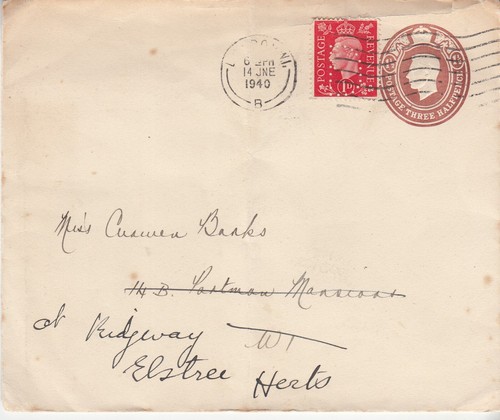 LONDON.W1.
6 15PM
14 JNE
1940
B
POSTAGE REVENUE
1D
POSTAGE·THREE HALFPENCE
Miss Curwen Banks
14 B. Portman Mansions
W1
at Ridgway
Elstree Herts